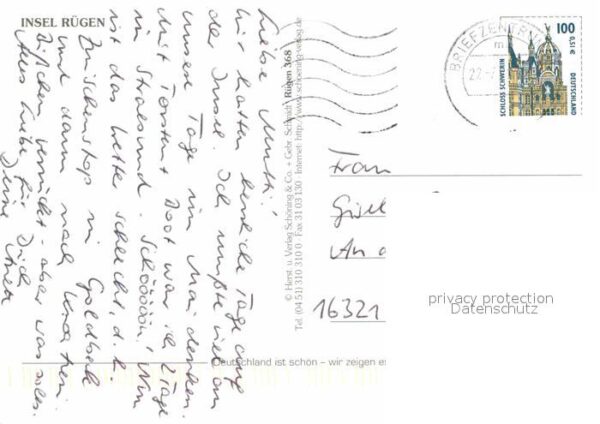 INSEL RÜGEN
Liebe Mutti!
wir hatten herrliche Tage auf
der Insel. Ich mußte viel an
unsere Tage im Mai denken.
Mit Torsten Boot war ich 2 Tage
in Stralsund. Schööön! Nun
ist das Wetter schlecht, d. h.
Zwischenstop in Goldbeck
und dann nach
Bißchen verrückt - aber was soll's.
Alles Liebe für Dich
Deine
© Herst. u. Verlag Schöning & Co. + Gebr. Schmidt · Rügen 368
Tel. (04 51) 310 310 0 · Fax 31 03 130 · Internet: http://www.schoening-verlag.de
Deutschland ist schön – wir zeigen es
BRIEFZENTRUM
22
100
0,51 €
SCHLOSS SCHWERIN
DEUTSCHLAND
Frau
Gisel
An d
16321
privacy protection
Datenschutz